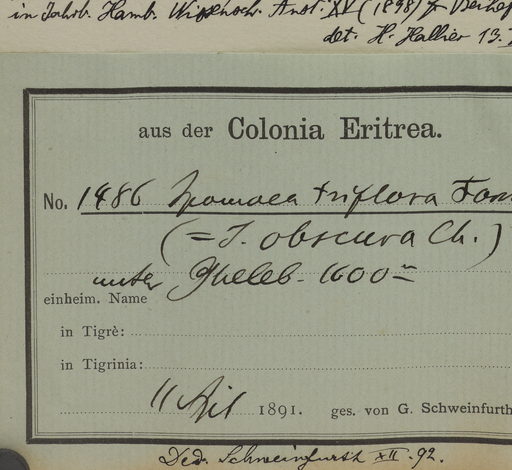 in Jahrb. Hamb. Wissensch. Anst. XV (1898) 3. Beihef
det. H. Hallier 13.
aus der Colonia Eritrea.
No. 1486 Ipomoea triflora Forsk
(= I. obscura Ch.)
unter Gheleb - 1600 m
einheim. Name
in Tigrè:
in Tigrinia:
11 April 1891. ges. von G. Schweinfurth
Ded. Schweinfurth XII. 92.